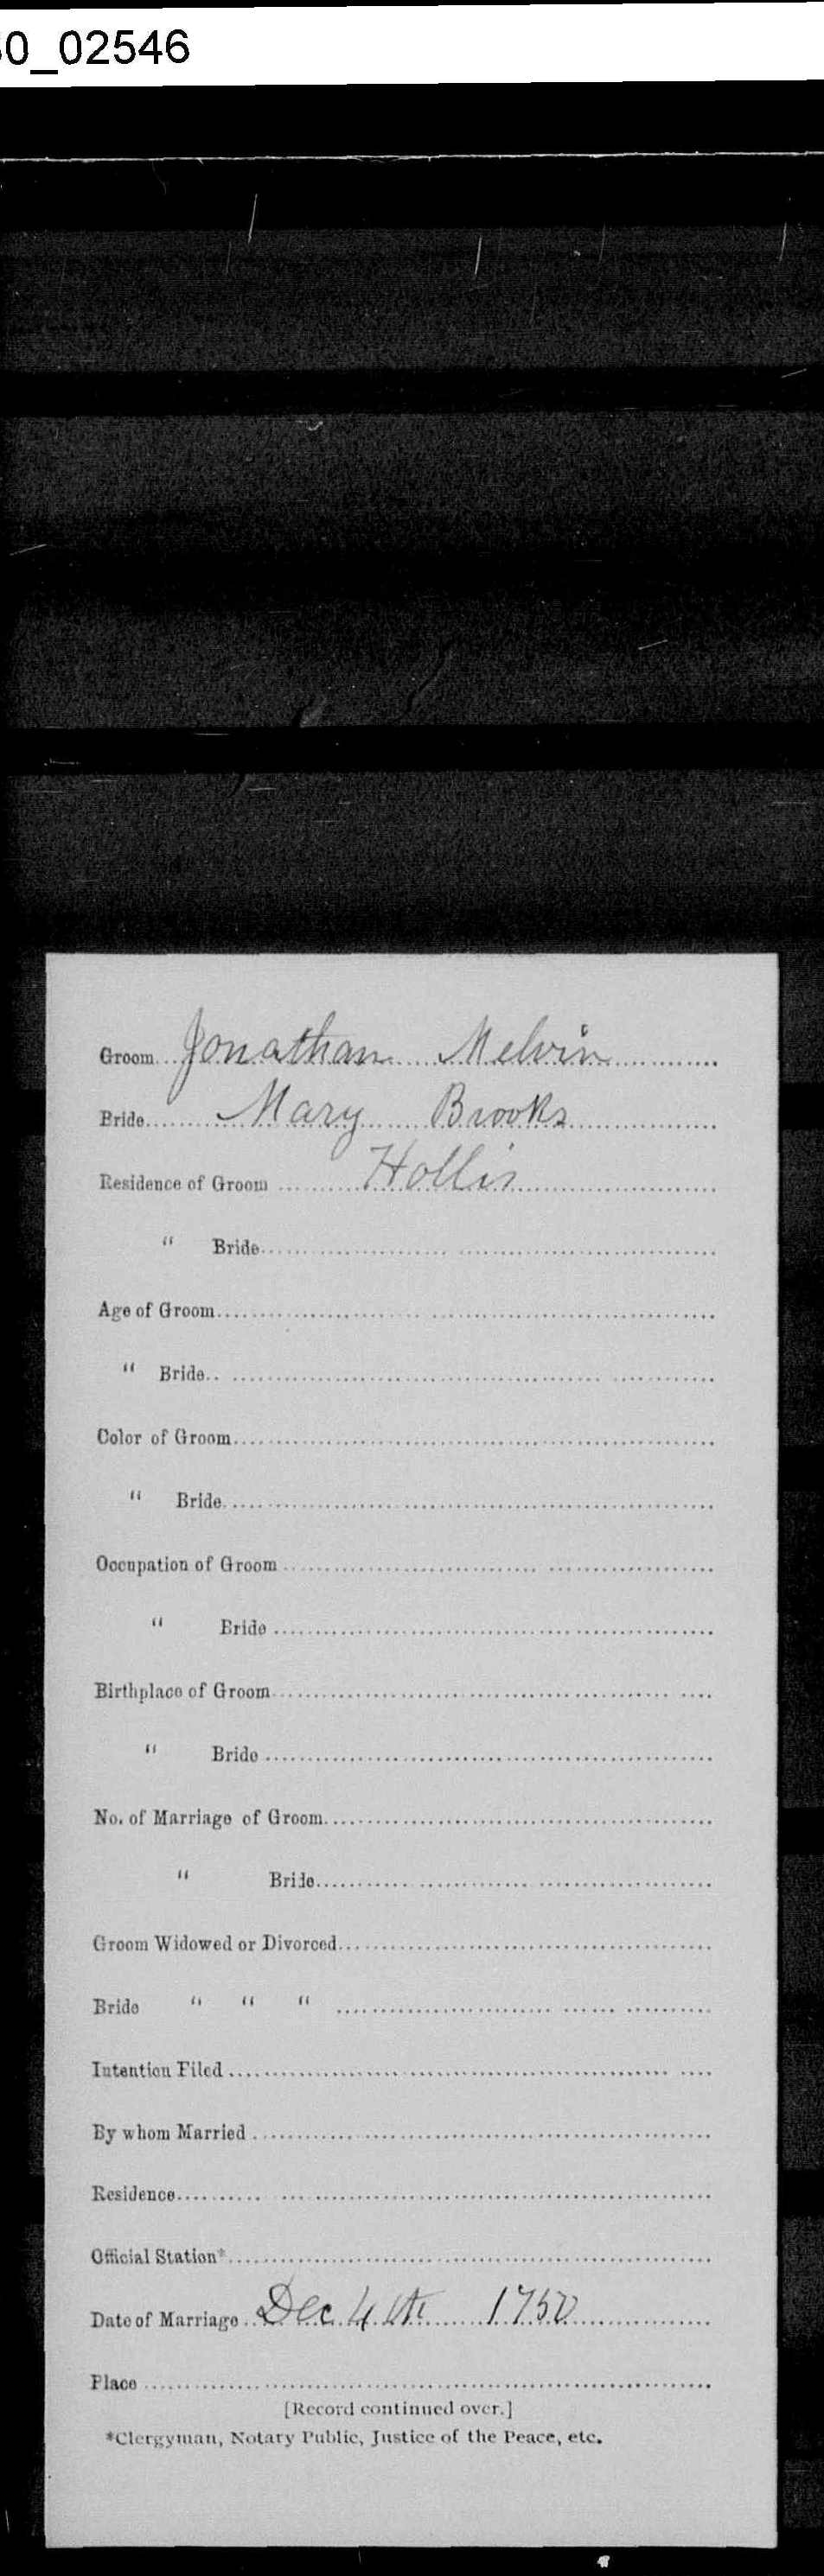 0_02546
Groom Jonathan Melvin
Bride Mary Brooks
Residence of Groom Hollis
" Bride
Age of Groom
" Bride
Color of Groom
" Bride
Occupation of Groom
" Bride
Birthplace of Groom
" Bride
No. of Marriage of Groom
" Bride
Groom Widowed or Divorced
Bride " " "
Intention Filed
By whom Married
Residence
Official Station*
Date of Marriage Dec 4th 1750
Place
[Record continued over.]
*Clergyman, Notary Public, Justice of the Peace, etc.